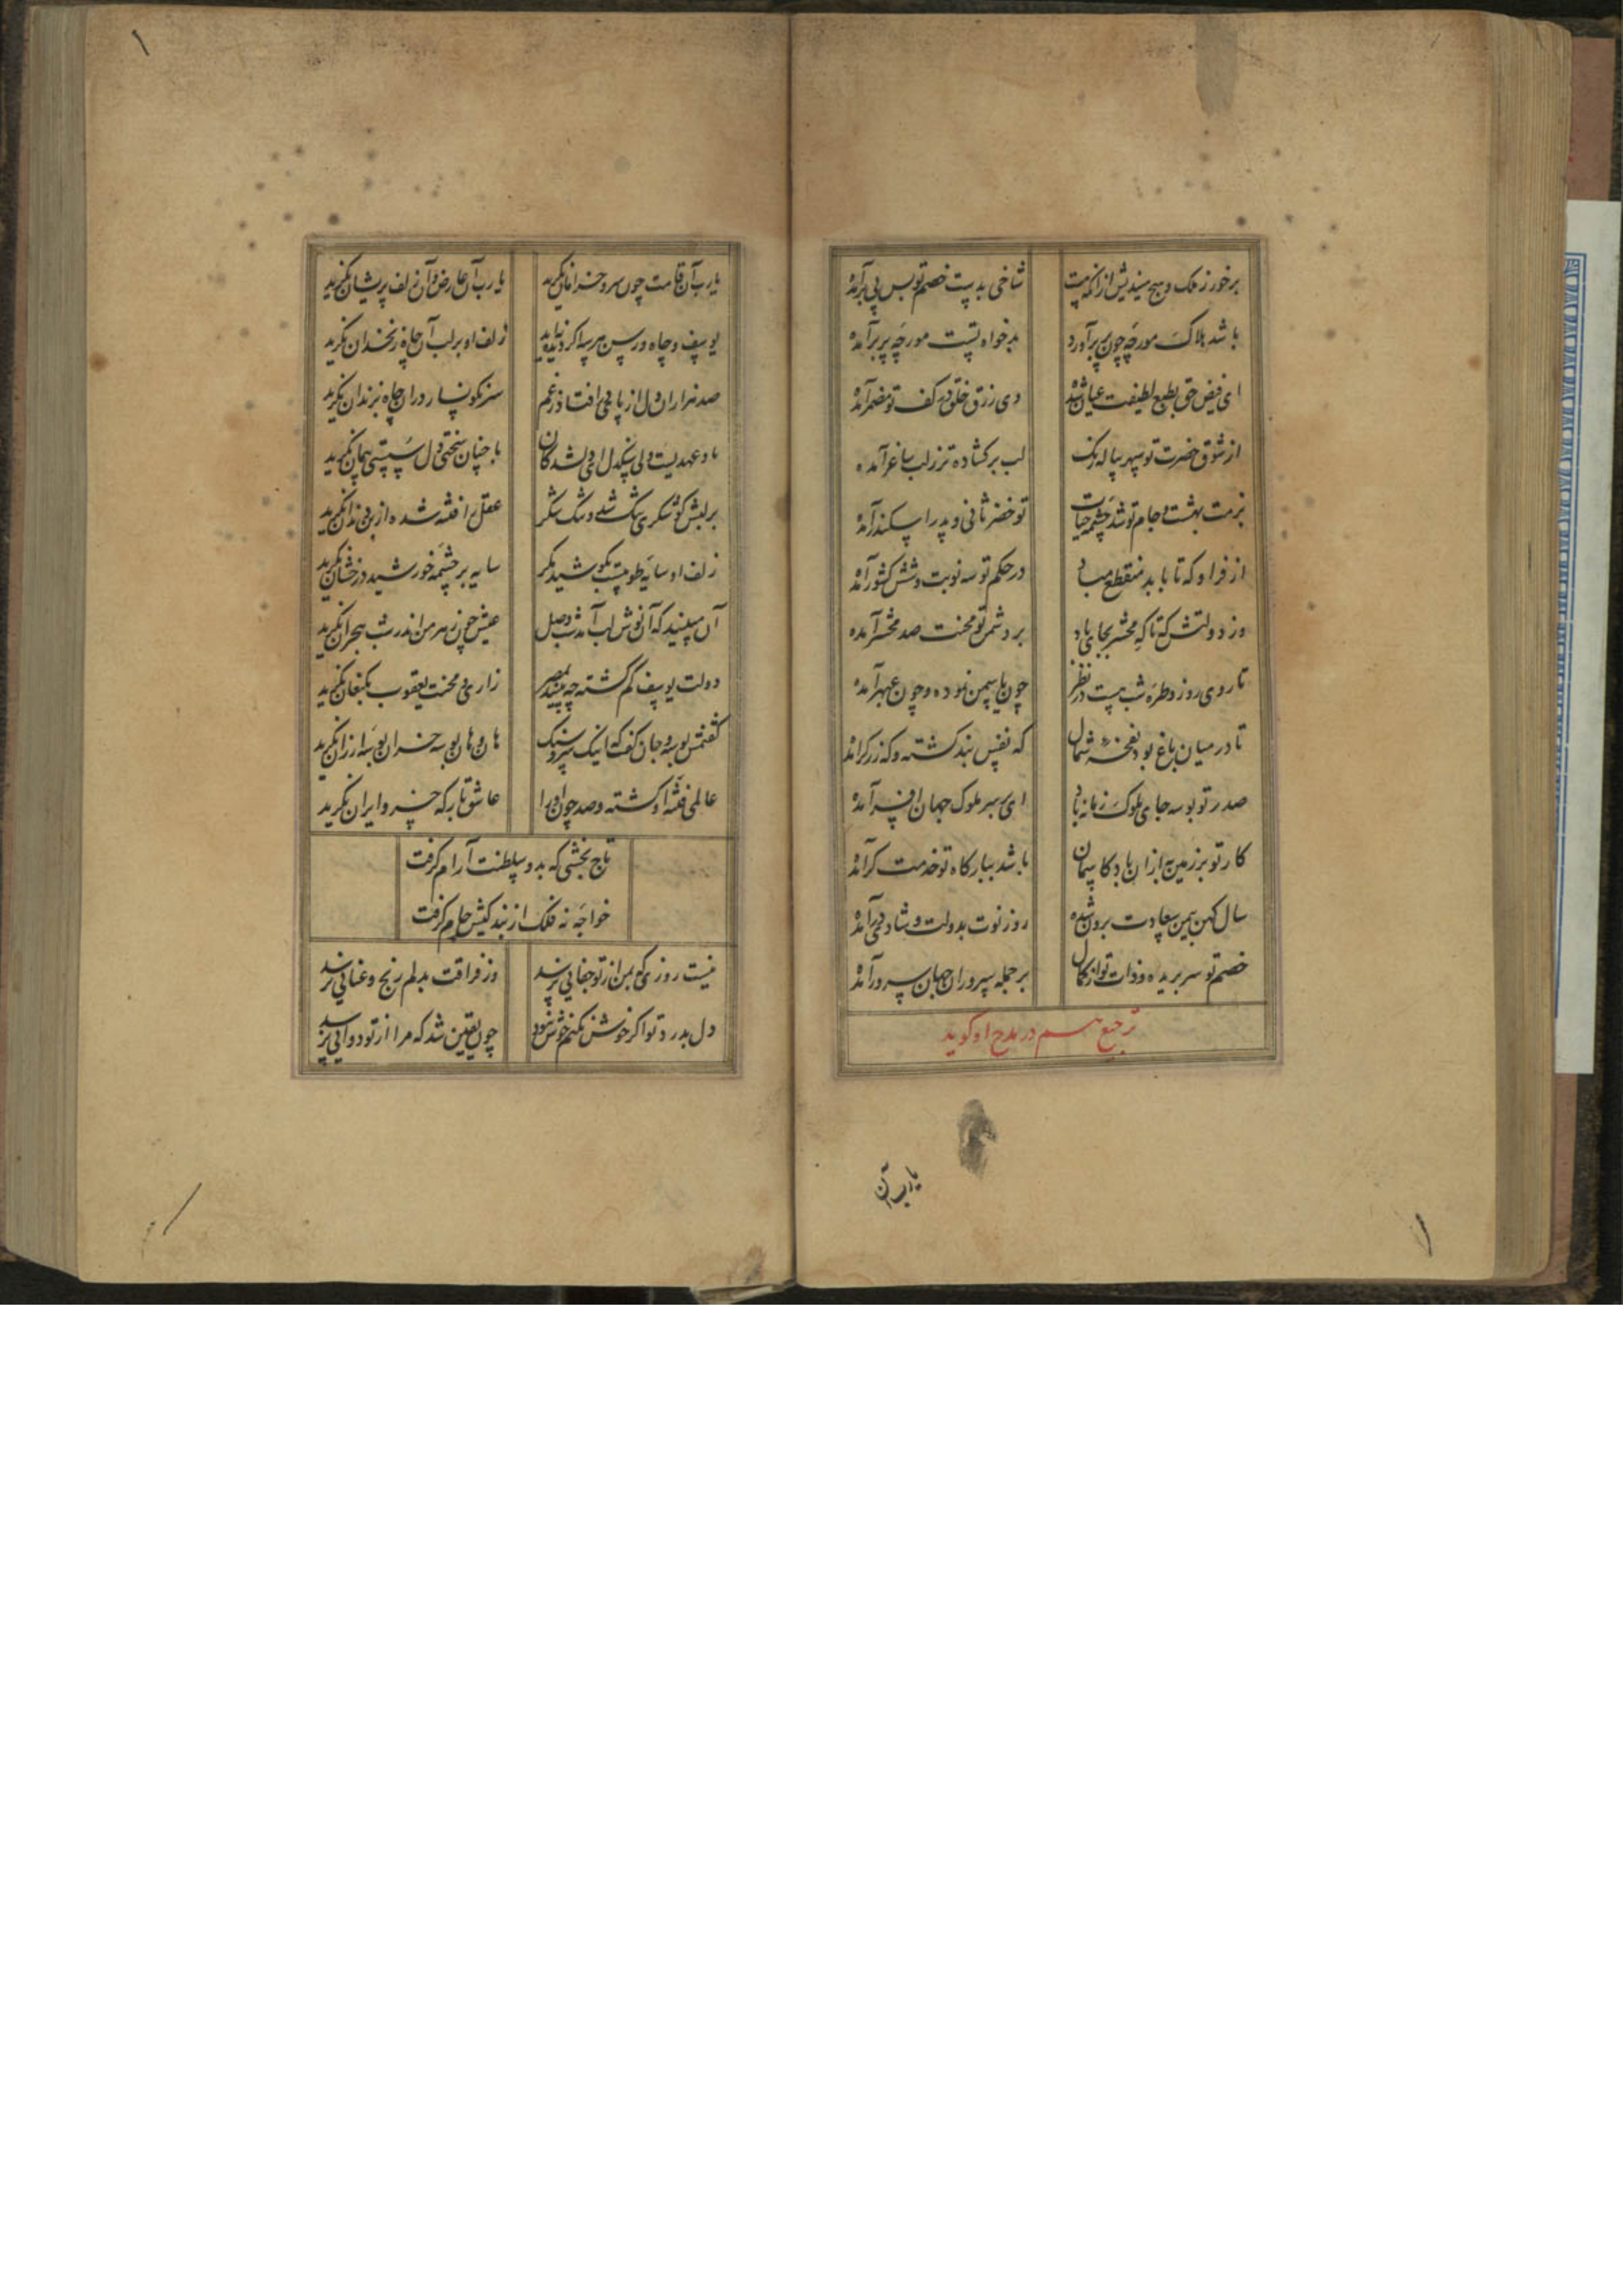 برخور ز ملک و هیچ میندیش از آنکه هست شاخی بدست خصم تو بس بی‌بر آمده
باشد هلاک مورچه چون پر برآورد بدخواه تست مورچهٔ پر برآمده
ای فیض حق بطبع لطیفت عیان شده وی رزق خلق در کف تو مضمر آمده
از شوق حضرت تو سپهر پیاله رنگ لب برگشاده‌تر ز لب ساغر آمده
بزمت بهشت و جام تو شد چشمهٔ حیات تو خضر ثانی و پدر اسکندر آمده
از فر او که تا بابد منقطع مباد در حکم تو سه نوبت و شش کشور آمده
وز دولتش که تا که محشر بجای باد بر دشمن تو محنت صد محشر آمده
تا روی روز و طره شب هست در نظر چون یاسمین نموده و چون عبهر آمده
تا در میان باغ بود نفخهٔ شمال که نقش بند گشته و گه زرگر آمده
صدر تو بوسه جای ملوک زمانه باد ای بر سر ملوک جهان افسر آمده
کار تو بر زمین به از آن باد کاسمان باشد ببارگاه تو خدمت گر آمده
سال کهن بیمن سعادت برون شده روز نوت بدولت و شادی در آمده
خصم تو سر بریده و ذات تو از کمال بر جمله سروران جهان سرور آمده
ترجیع هم در مدح او گوید
یارب آن
یارب آن قامت چون سرو خرامان نگرید یارب آن عارض و آن زلف پریشان نگرید
یوسف و چاه و رسن هر سه اگر نادیدید زلف او بر لب آن چاه زنخدان نگرید
صد هزاران دل از پای در افتاده ز غم سرنگونسار در آن چاه بزندان نگرید
با چنان سختی دل سستی پیمان نگرید
بر لبش گوشکری تنگ شد و تنگ شکر عقل را فتنه شده از بن دندان نگرید
زلف او سایهٔ طوبیست بگوشید مگر سایه بر چشمهٔ خورشید درخشان نگرید
آن مبینید که آن نوش لب آمد شب وصل عیش چون زهر من اندر شب هجران نگرید
دولت یوسف گم گشته چه بینید بمصر زاری و محنت یعقوب بکنعان نگرید
گفتمش بوسه و جان گفت که اینک هان و هان بوسه خران بوسهٔ ارزان نگرید
عالمی فتنهٔ او گشته و صد چون او را عاشق بارگه خسرو ایران نگرید
تاج بخشی که بدو سلطنت آرام گرفت
خواجهٔ نه فلک از بندگیش نام گرفت
نیست روزی که بمن از تو جفایی نرسد وز فراقت بدلم رنج و عنایی نرسد
دل بدرد تو اگر خوش نکنم خوش نبود چون یقین شد که مرا از تو دوایی نرسد